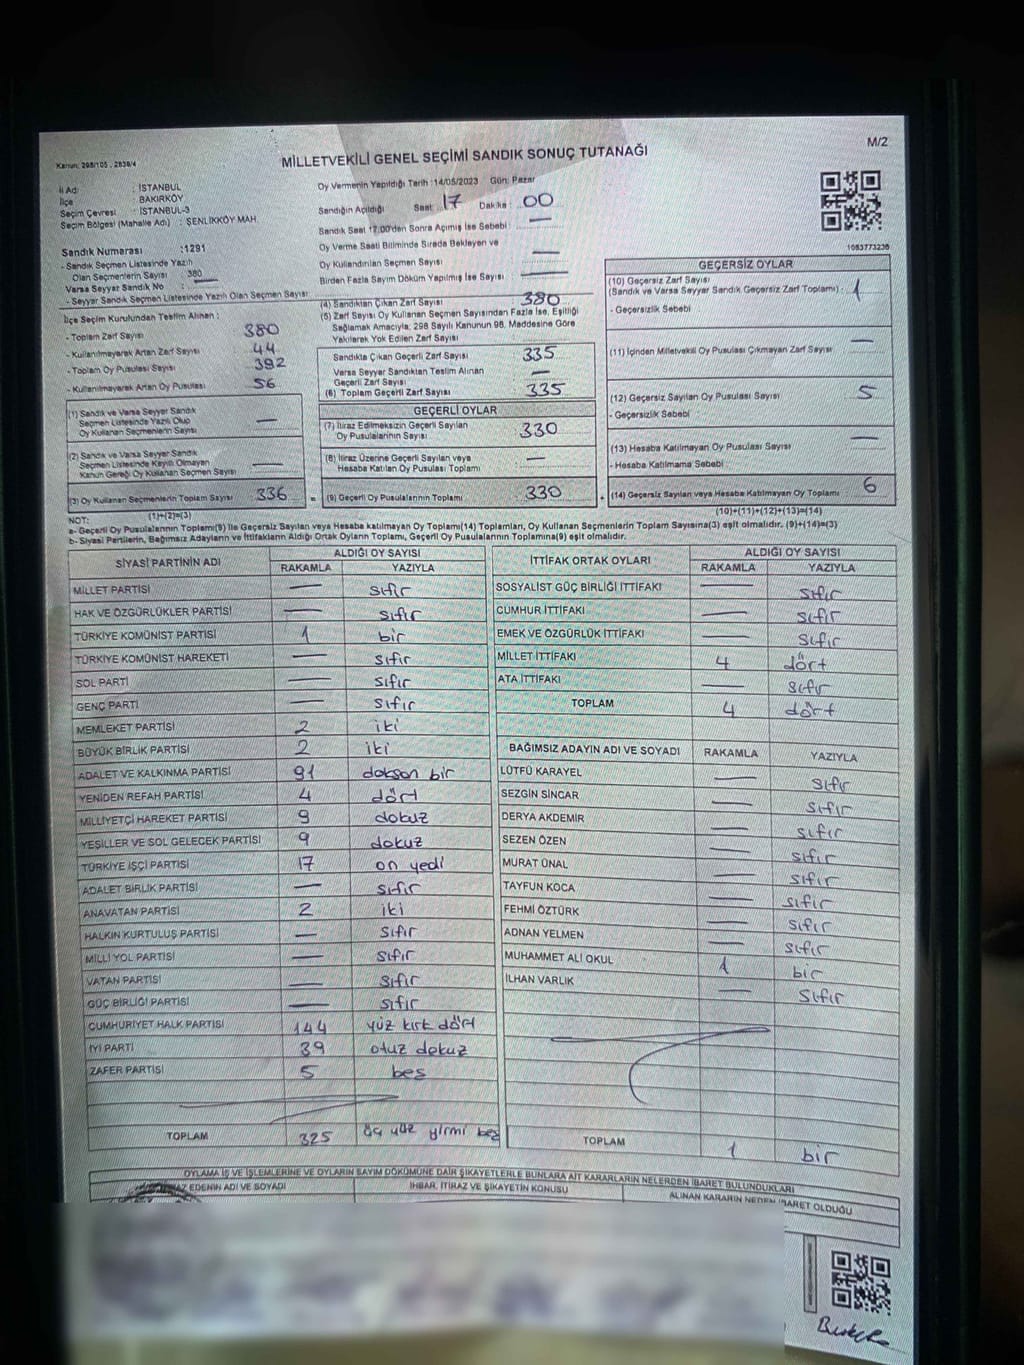 M/2
Kanun: 298/105 , 2839/4
MİLLETVEKİLİ GENEL SEÇİMİ SANDIK SONUÇ TUTANAĞI
İl Adı : İSTANBUL
İlçe : BAKIRKÖY
Seçim Çevresi : İSTANBUL-3
Seçim Bölgesi (Mahalle Adı) : ŞENLİKKÖY MAH.
Sandık Numarası :1291
- Sandık Seçmen Listesinde Yazılı
Olan Seçmenlerin Sayısı 380
Varsa Seyyar Sandık No :
- Seyyar Sandık Seçmen Listesinde Yazılı Olan Seçmen Sayısı
İlçe Seçim Kurulundan Teslim Alınan :
- Toplam Zarf Sayısı 380
- Kullanılmayarak Artan Zarf Sayısı 44
- Toplam Oy Pusulası Sayısı 392
- Kullanılmayarak Artan Oy Pusulası 56
(1) Sandık ve Varsa Seyyar Sandık
Seçmen Listesinde Yazılı Olup
Oy Kullanan Seçmenlerin Sayısı —
(2) Sandık ve Varsa Seyyar Sandık
Seçmen Listesinde Kayıtlı Olmayan
Kanun Gereği Oy Kullanan Seçmen Sayısı —
(3) Oy Kullanan Seçmenlerin Toplam Sayısı 336
(1)+(2)=(3)
Oy Vermenin Yapıldığı Tarih :14/05/2023 Gün: Pazar
Sandığın Açıldığı Saat: 17 Dakika : 00
Sandık Saat 17.00'den Sonra Açılmış İse Sebebi : —
Oy Verme Saati Bitiminde Sırada Bekleyen ve
Oy Kullandırılan Seçmen Sayısı —
Birden Fazla Sayım Döküm Yapılmış İse Sayısı —
(4) Sandıktan Çıkan Zarf Sayısı 380
(5) Zarf Sayısı Oy Kullanan Seçmen Sayısından Fazla İse, Eşitliği
Sağlamak Amacıyla, 298 Sayılı Kanunun 98. Maddesine Göre
Yakılarak Yok Edilen Zarf Sayısı
Sandıkta Çıkan Geçerli Zarf Sayısı 335
Varsa Seyyar Sandıktan Teslim Alınan
Geçerli Zarf Sayısı —
(6) Toplam Geçerli Zarf Sayısı 335
GEÇERLİ OYLAR
(7) İtiraz Edilmeksizin Geçerli Sayılan
Oy Pusulalarının Sayısı 330
(8) İtiraz Üzerine Geçerli Sayılan veya
Hesaba Katılan Oy Pusulası Toplamı —
= (9) Geçerli Oy Pusulalarının Toplamı 330
1083773236
GEÇERSİZ OYLAR
(10) Geçersiz Zarf Sayısı
(Sandık ve Varsa Seyyar Sandık Geçersiz Zarf Toplamı) : 1
- Geçersizlik Sebebi
(11) İçinden Milletvekili Oy Pusulası Çıkmayan Zarf Sayısı —
(12) Geçersiz Sayılan Oy Pusulası Sayısı 5
- Geçersizlik Sebebi
(13) Hesaba Katılmayan Oy Pusulası Sayısı —
- Hesaba Katılmama Sebebi
+ (14) Geçersiz Sayılan veya Hesaba Katılmayan Oy Toplamı 6
(10)+(11)+(12)+(13)=(14)
NOT:
a- Geçerli Oy Pusulalarının Toplamı(9) ile Geçersiz Sayılan veya Hesaba katılmayan Oy Toplamı(14) Toplamları, Oy Kullanan Seçmenlerin Toplam Sayısına(3) eşit olmalıdır. (9)+(14)=(3)
b- Siyasi Partilerin, Bağımsız Adayların ve İttifakların Aldığı Ortak Oyların Toplamı, Geçerli Oy Pusulalarının Toplamına(9) eşit olmalıdır.
SİYASİ PARTİNİN ADI ALDIĞI OY SAYISI
RAKAMLA YAZIYLA
MİLLET PARTİSİ — sıfır
HAK VE ÖZGÜRLÜKLER PARTİSİ — sıfır
TÜRKİYE KOMÜNİST PARTİSİ 1 bir
TÜRKİYE KOMÜNİST HAREKETİ — sıfır
SOL PARTİ — sıfır
GENÇ PARTİ — sıfır
MEMLEKET PARTİSİ 2 iki
BÜYÜK BİRLİK PARTİSİ 2 iki
ADALET VE KALKINMA PARTİSİ 91 doksan bir
YENİDEN REFAH PARTİSİ 4 dört
MİLLİYETÇİ HAREKET PARTİSİ 9 dokuz
YEŞİLLER VE SOL GELECEK PARTİSİ 9 dokuz
TÜRKİYE İŞÇİ PARTİSİ 17 on yedi
ADALET BİRLİK PARTİSİ — sıfır
ANAVATAN PARTİSİ 2 iki
HALKIN KURTULUŞ PARTİSİ — sıfır
MİLLİ YOL PARTİSİ — sıfır
VATAN PARTİSİ — sıfır
GÜÇ BİRLİĞİ PARTİSİ — sıfır
CUMHURİYET HALK PARTİSİ 144 yüz kırk dört
İYİ PARTİ 39 otuz dokuz
ZAFER PARTİSİ 5 beş
TOPLAM 325 üç yüz yirmi beş
İTTİFAK ORTAK OYLARI ALDIĞI OY SAYISI
RAKAMLA YAZIYLA
SOSYALİST GÜÇ BİRLİĞİ İTTİFAKI — sıfır
CUMHUR İTTİFAKI — sıfır
EMEK VE ÖZGÜRLÜK İTTİFAKI — sıfır
MİLLET İTTİFAKI 4 dört
ATA İTTİFAKI — sıfır
TOPLAM 4 dört
BAĞIMSIZ ADAYIN ADI VE SOYADI RAKAMLA YAZIYLA
LÜTFÜ KARAYEL — sıfır
SEZGİN SİNCAR — sıfır
DERYA AKDEMİR — sıfır
SEZEN ÖZEN — sıfır
MURAT ÜNAL — sıfır
TAYFUN KOCA — sıfır
FEHMİ ÖZTÜRK — sıfır
ADNAN YELMEN — sıfır
MUHAMMET ALİ OKUL 1 bir
İLHAN VARLIK — sıfır
TOPLAM 1 bir
OYLAMA İŞ VE İŞLEMLERİNE VE OYLARIN SAYIM DÖKÜMÜNE DAİR ŞİKAYETLERLE BUNLARA AİT KARARLARIN NELERDEN İBARET BULUNDUKLARI
EDENİN ADI VE SOYADI İHBAR, İTİRAZ VE ŞİKAYETİN KONUSU ALINAN KARARIN NEDEN İBARET OLDUĞU